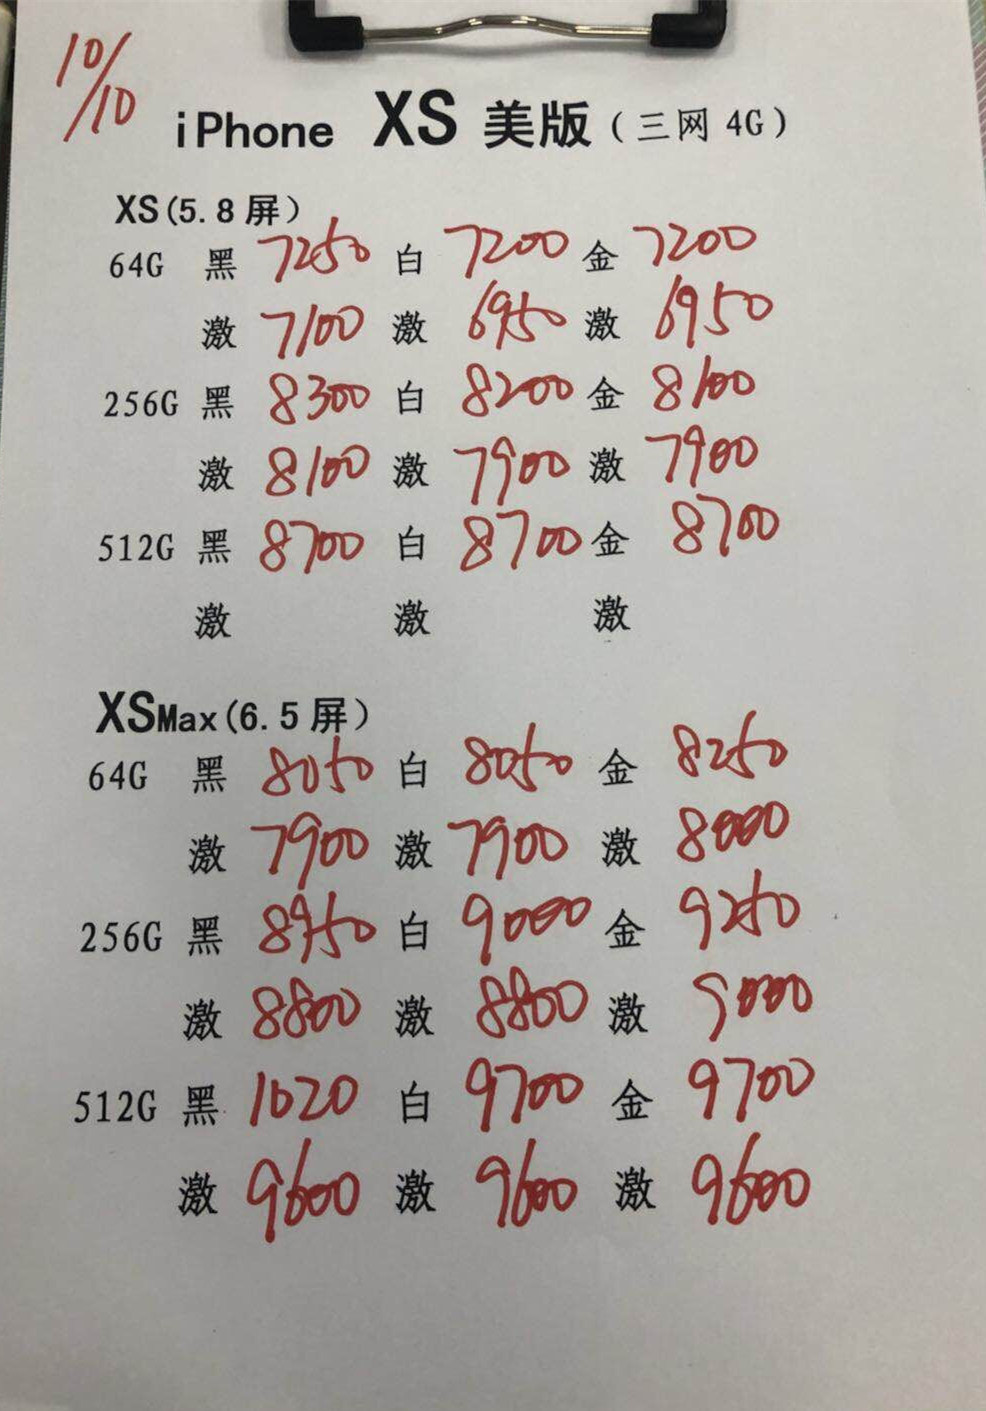 10/10
iPhone XS 美版(三网 4G)
XS(5.8 屏)
64G 黑 7250 白 7200 金 7200
激 7100 激 6950 激 6950
256G 黑 8300 白 8200 金 8100
激 8100 激 7900 激 7900
512G 黑 8700 白 8700 金 8700
激 激 激
XSMax(6.5 屏)
64G 黑 8050 白 8050 金 8250
激 7900 激 7900 激 8000
256G 黑 8950 白 9000 金 9250
激 8800 激 8800 激 9000
512G 黑 1020 白 9700 金 9700
激 9600 激 9600 激 9600